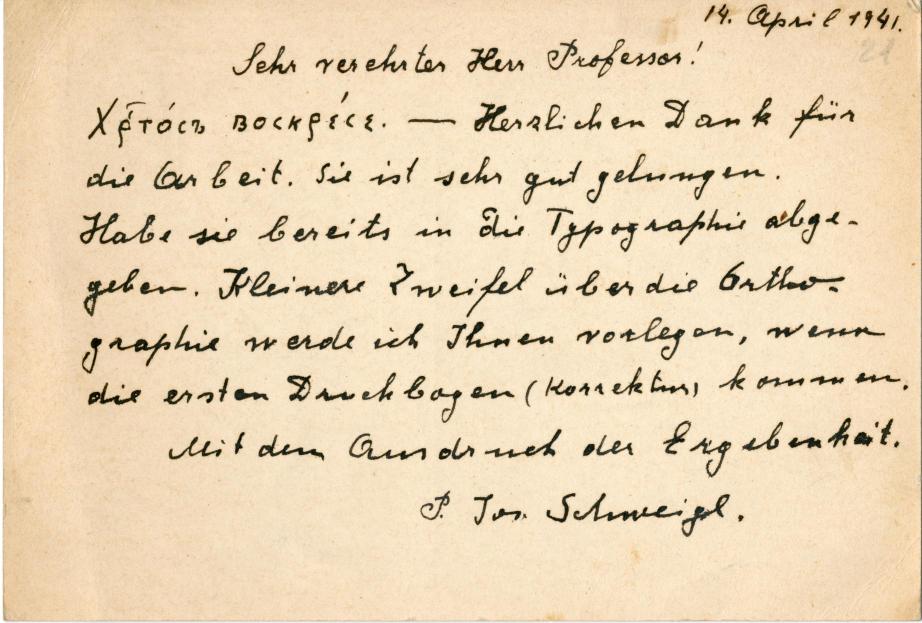 14. April 1941.
21
Sehr verehrter Herr Professor!
Хр҃тóсъ воскрéсе. — Herzlichen Dank für
die Arbeit. Sie ist sehr gut gelungen.
Habe sie bereits in die Typographie abge-
geben. Kleinere Zweifel über die Ortho-
graphie werde ich Ihnen vorlegen, wenn
die ersten Druckbogen (Korrektur) kommen.
Mit dem Ausdruck der Ergebenheit.
P. Jos. Schweigl.